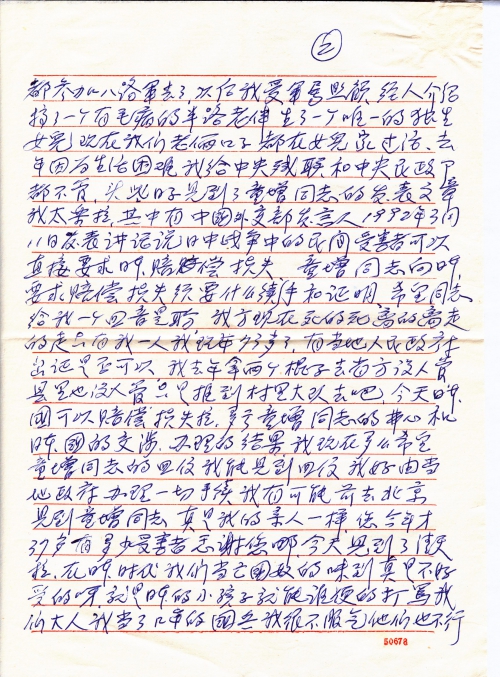 ②
都参加八路军去了,以后我受军属照顾,经人介绍
找了一个有毛病的半路老伴 生了一个唯一的独生
女儿 现在我们老俩口子都在女儿家过活、去
年因为生活困难 我给中央残联和中央民政部
都不管,头些日子见到了童增同志的发表文章
我太高兴 其中有中国外交部发言人1992年3月
11日发表讲话说日中战争中的民间受害者可以
直接要求日 赔偿损失、童增同志向日
要求赔偿损失须要什么续手和证明,希望同志
给我一个回音是盼 我方现在死的死 离的离走
的走只有我一人 我现年73岁了,有当地人民政府
出证是否可以 我去年拿两个棍子去省方没人管
县里也没人管 只是推到村里大队去吧,今天日
国可以赔偿损失 童增同志的 心和
日 国的交涉、办理的结果 我现在多么希望
童增同志的回信 我能见到回信 我好由当
地政府办理一切手续 我有可能前去北京
见到童增同志 真是我的亲人一样 您今年才
37岁有多少受害者感谢您哪,今天见到了
在日 时代我们当亡国奴的味到真是不好
受的 就是日 的小孩子就能 的打骂我
们大人 我当了 的国兵我很不服气他们也不行
50678